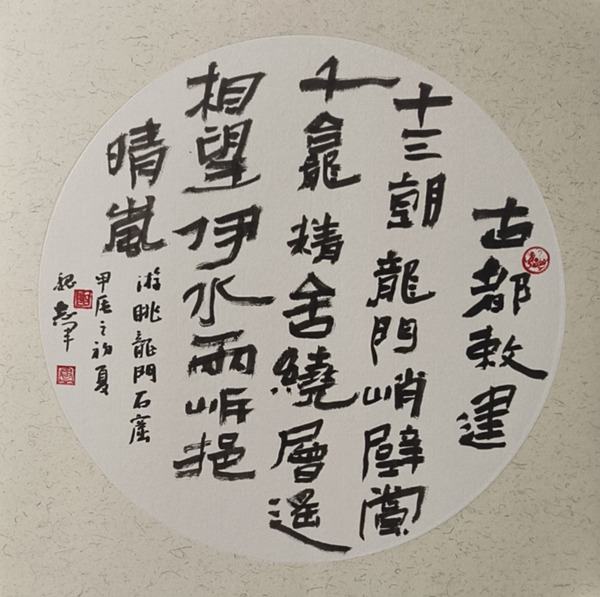 古都敕建
十三朝龍門峭壁賞
千龕精舍繞層遙
相望伊水兩岸挹
晴嵐
游眺龍門石窟
甲辰之初夏
志